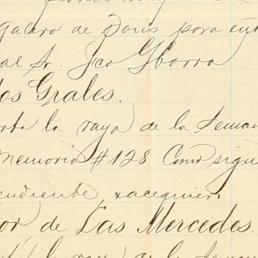 gacro de Paris para en
al Sr. Fco Ybarra
os Grales.
rta la raya de la Seman
Memoria #128 Como sigu
endiente sacequier
or de Las Mercedes.
la raya de la